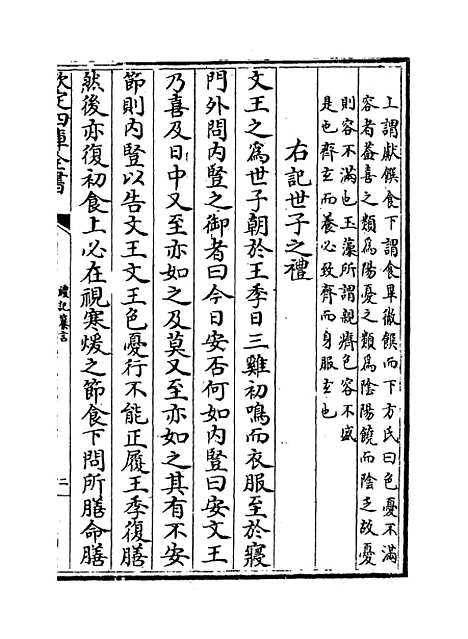 上謂獻饌食下謂食畢徹饌而下方氏曰色憂不滿
容者葢喜之類為陽憂之類為陰陽饒而陰乏故憂
則容不滿也玉藻所謂親癠色容不盛
是也齊𤣥而養必致齊而身服𤣥也
右記世子之禮
文王之為世子朝於王季日三雞初鳴而衣服至於寢
門外問内豎之御者曰今日安否何如内豎曰安文王
乃喜及日中又至亦如之及莫又至亦如之其有不安
節則内豎以告文王文王色憂行不能正履王季復膳
然後亦復初食上必在視寒煖之節食下問所膳命膳
欽定四庫全書
禮記纂言
二